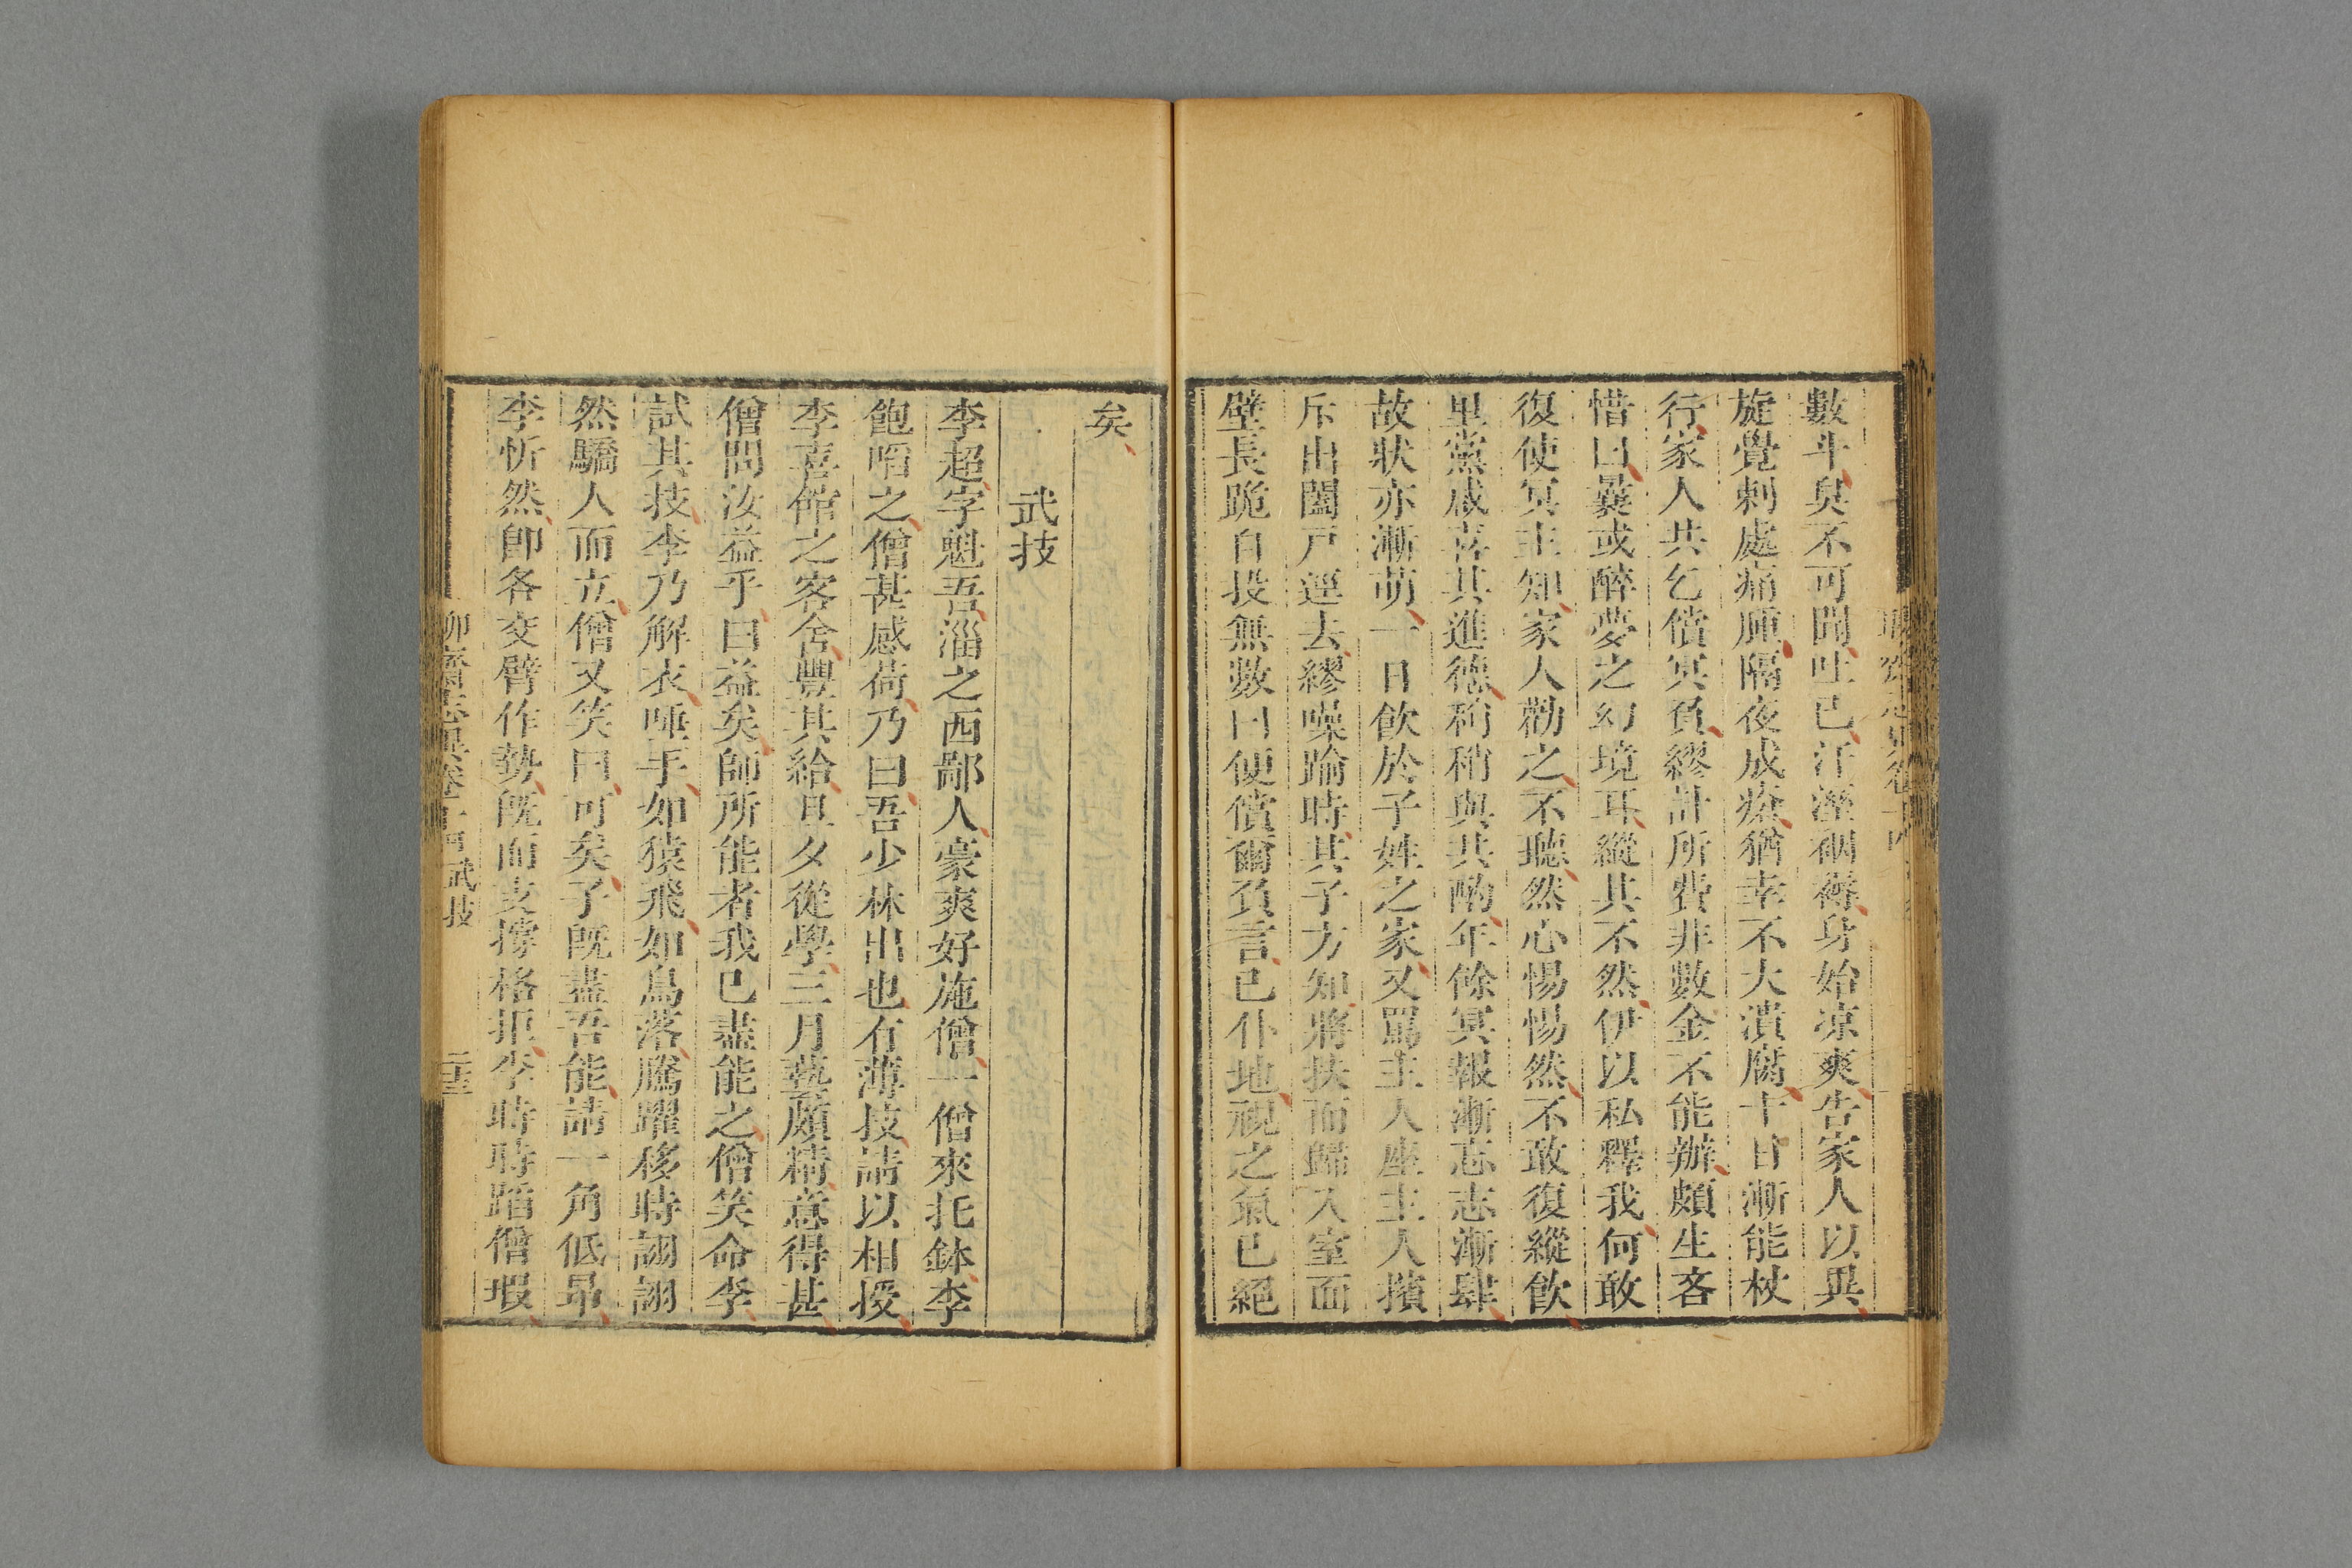 數斗臭不可聞吐已汗溼裀褥身始凉爽告家人以異
旋覺刺處痛腫隔夜成瘡猶幸不大潰腐十日漸能杖
行家人共乞償冥負繆計所費非數金不能辦頗生吝
惜曰曩或醉夢之幻境耳縱其不然伊以私釋我何敢
復使冥主知家人勸之不聽然心惕惕然不敢復縱飲
里黨咸喜其進德稍稍與共酌年餘冥報漸忘志漸肆
故狀亦漸萌一日飲於子姓之家又罵主人座主人擯
斥出闔戸逕去繆噪踰時其子方知將扶而歸入室面
壁長跪自投無數曰便償爾負言已仆地視之氣已絕
矣
武技
李超字魁吾淄之西鄙人豪爽好施僧一僧來托鉢李
飽啗之僧甚感荷乃曰吾少林出也有薄技請以相授
李喜館之客舍豐其給旦夕從學三月藝頗精意得甚
僧問汝益乎曰益矣師所能者我已盡能之僧笑命李
試其技李乃解衣唾手如猿飛如鳥落騰躍移時詡詡
然驕人而立僧又笑曰可矣子旣盡吾能請一角低昂
李忻然卽各交臂作勢旣而支撐格拒李時時蹈僧瑕
聊齋志異卷十四 武技 二十三